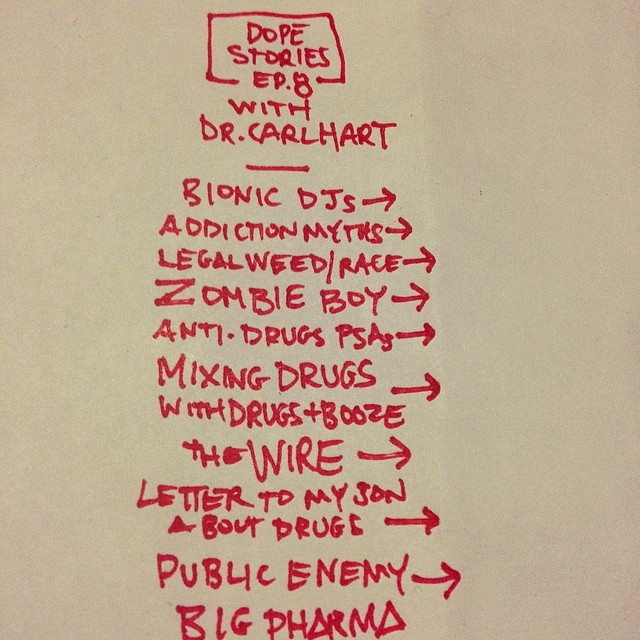 DOPE
STORIES
EP.8
WITH
DR. CARL HART
—
BIONIC DJs →
ADDICTION MYTHS →
LEGAL WEED/RACE →
ZOMBIE BOY →
ANTI-DRUGS PSAs →
MIXING DRUGS →
WITH DRUGS + BOOZE
THE WIRE →
LETTER TO MY SON
ABOUT DRUGS →
PUBLIC ENEMY →
BIG PHARMA